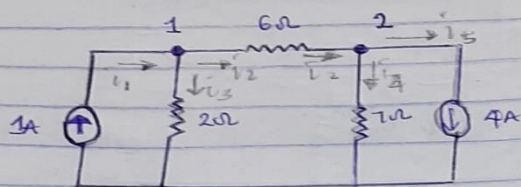 1 6Ω 2
i₁ i₂ i₂ i₅
i₃ i₄
1A 2Ω 7Ω 4A